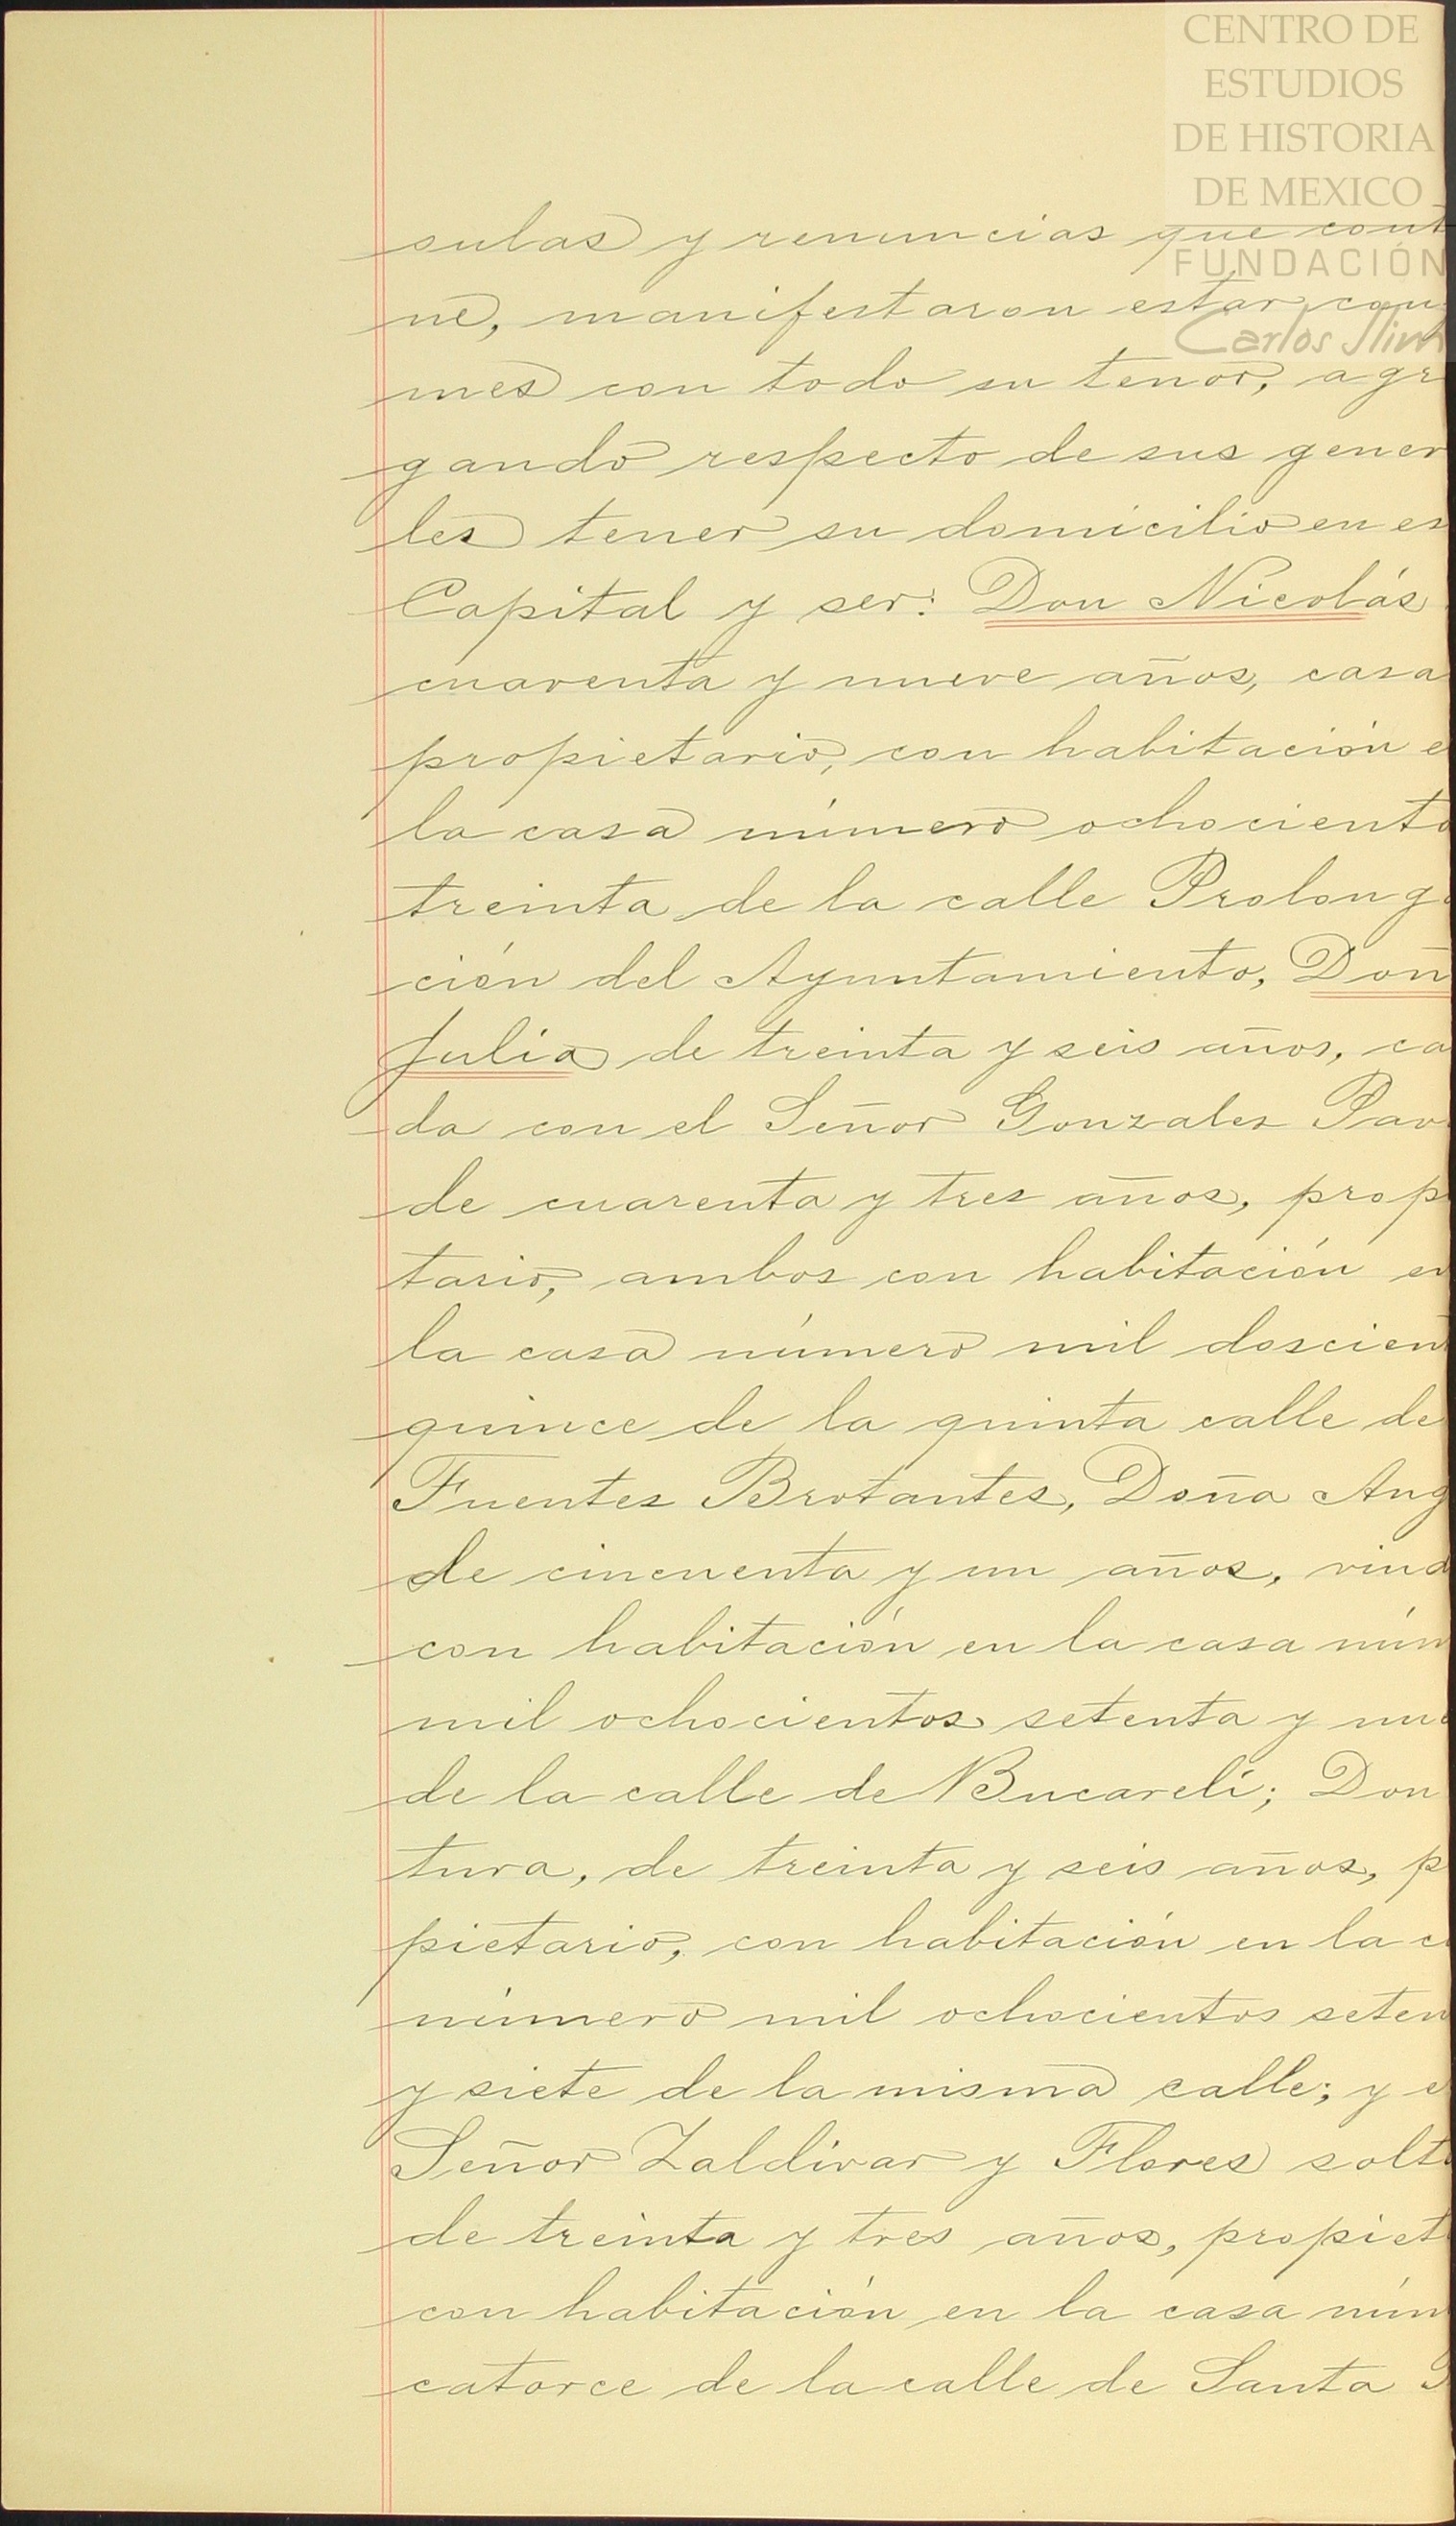 CENTRO DE
ESTUDIOS
DE HISTORIA
DE MEXICO
FUNDACIÓN
Carlos Slim
sulas y renuncias que cont
ne, manifestaron estar con
mes con todo su tenor, agr
gando respecto de sus gener
les tener su domicilio en es
Capital y ser: Don Nicolás
cuarenta y nueve años, casa
propietario, con habitación e
la casa número ochociento
treinta de la calle Prolonga
ción del Ayuntamiento, Doñ
Julia de treinta y seis años, ca
da con el Señor Gonzales Pav
de cuarenta y tres años, prop
tario, ambos con habitación en
la casa número mil doscien
quince de la quinta calle de
Fuentes Brotantes, Doña Ang
de cincuenta y un años, viud
con habitación en la casa núm
mil ochocientos setenta y nue
de la calle de Bucareli; Don
tura, de treinta y seis años, p
pietario, con habitación en la c
número mil ochocientos seten
y siete de la misma calle; y e
Señor Zaldivar y Flores solt
de treinta y tres años, propiet
con habitación en la casa núm
catorce de la calle de Santa